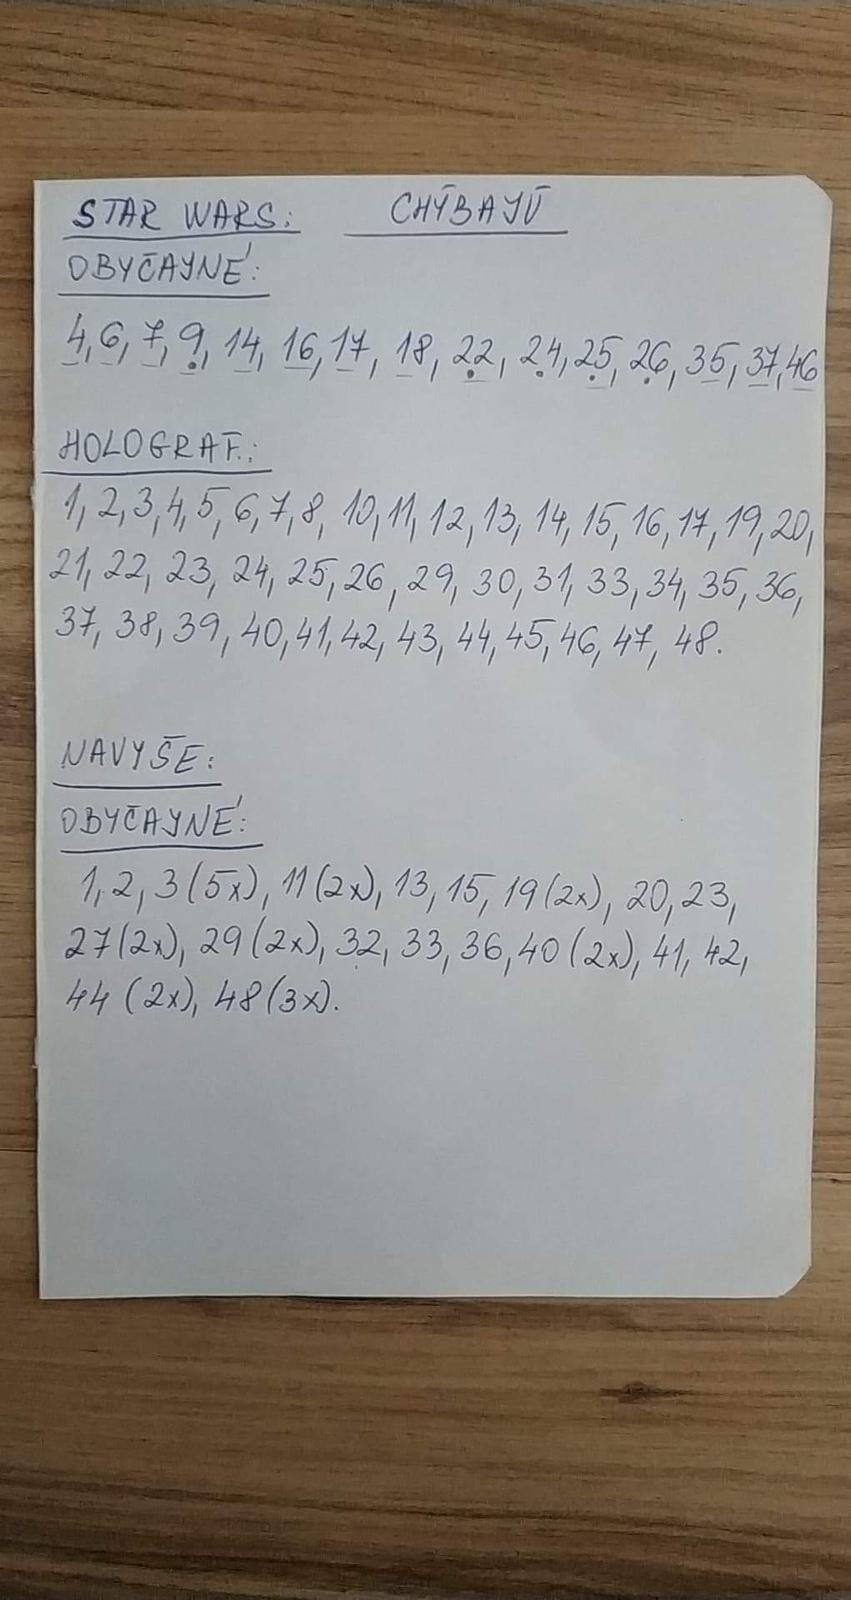 STAR WARS: CHÝBAJÚ
OBYČAJNÉ:
4, 6, 7, 9, 14, 16, 17, 18, 22, 24, 25, 26, 35, 37, 46
HOLOGRAF.:
1, 2, 3, 4, 5, 6, 7, 8, 10, 11, 12, 13, 14, 15, 16, 17, 19, 20,
21, 22, 23, 24, 25, 26, 29, 30, 31, 33, 34, 35, 36,
37, 38, 39, 40, 41, 42, 43, 44, 45, 46, 47, 48.
NAVYŠE:
OBYČAJNÉ:
1, 2, 3 (5x), 11 (2x), 13, 15, 19 (2x), 20, 23,
27 (2x), 29 (2x), 32, 33, 36, 40 (2x), 41, 42,
44 (2x), 48 (3x).